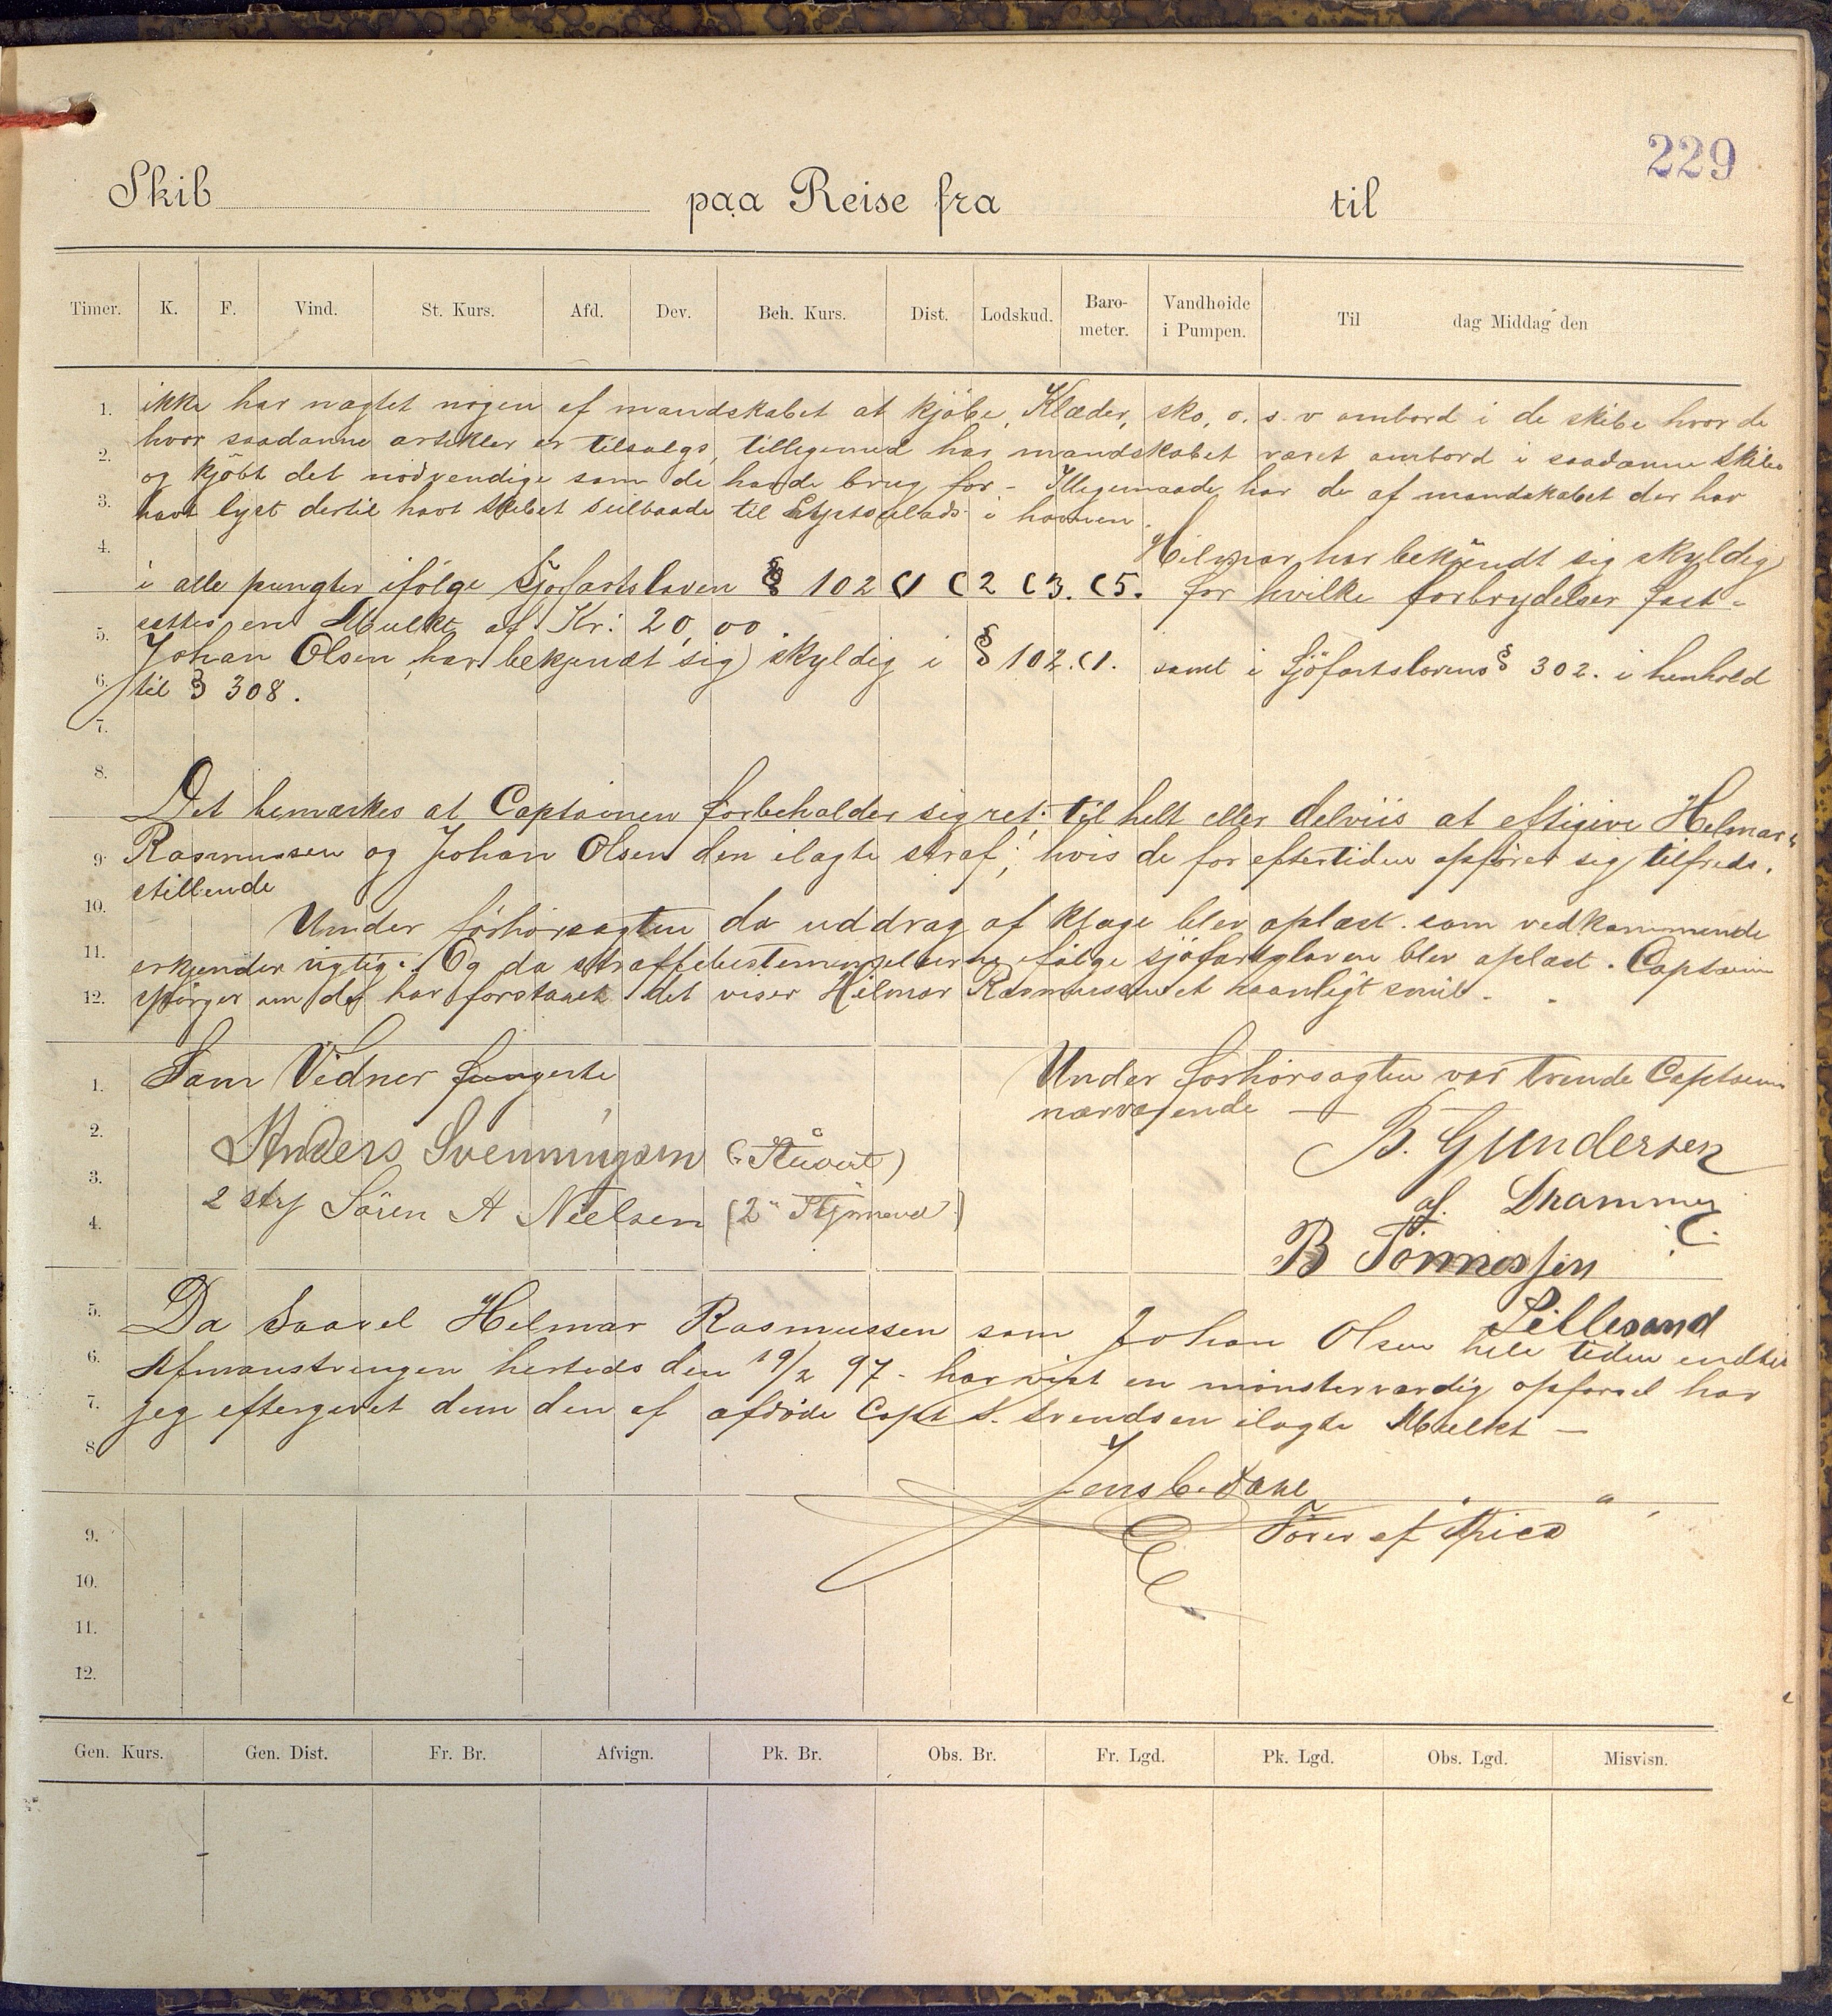 229
Skib paa Reise fra til
Timer. K. F. Vind. St. Kurs. Afd. Dev. Beh. Kurs. Dist. Lodskud. Baro-meter. Vandhøide i Pumpen. Til dag Middag den
1. ikke har nægtet nogen af mandskabet at kjöbe, Klæder, sko, o. s. v ombord i de skibe hvor de
2. hvor saadanne artikler er tilsalgs, tillegemed har mandskabet været ombord i saadanne Skibe
og kjöbt det nödvendige som de havde brug for - Illigemaade har de af mandskabet der har
3. havt lyst dertil havt Skibet seilbaade til i havnen.
4. Hilmar har bekjendt sig skyldig
i alle pungter ifölge Sjöfartsloven § 102 (1 (2 (3. (5. for hvilke forbrydelser fast-
5. sættes en Mulkt af Kr: 20,00.
Johan Olsen har bekjendt sig skyldig i § 102.(1. samt i Sjöfartslovens § 302. i henhold
6. til § 308.
7.
8.
Det bemærkes at Captainen forbeholder sig ret til helt eller delviis at eftigive Helmar
9. Rasmussen og Johan Olsen den ilagte straf; hvis de for eftertiden opförer sig tilfreds.
stillende
10. Under förhörsagten da uddrag af klage blev oplæst. som vedkommende
11. erkjender rigtig. Og da straffebestemmelserne ifölge sjöfartsloven blev oplæst. Captain
12. spörger om de har forstaaet det viser Hilmar Rasmussen et haanligt smil.
1. Som Vidner fungerte Under forhörsagten var trende Captein
nærværende
2. Anders Svenningsen (Stuert) B. Gundersen
3. af. Drammen
4. 2 strm Sören A Nielsen (2den Styrmand) B Tönnessen
Lillesand
5. Da saavel Helmar Rasmussen som Johan Olsen hele tiden indtil
6. Afmönstringen herteds den 19/2 97 - har vist en mönsterværdig opförsel har
7. jeg eftergivet dem den af afdöde Capt S. Svendsen ilagte Mulkt —
8.
Jens C. Dahl
9. Förer af
10.
11.
12.
Gen. Kurs. Gen. Dist. Fr. Br. Afvign. Pk. Br. Obs. Br. Fr. Lgd. Pk. Lgd. Obs. Lgd. Misvisn.